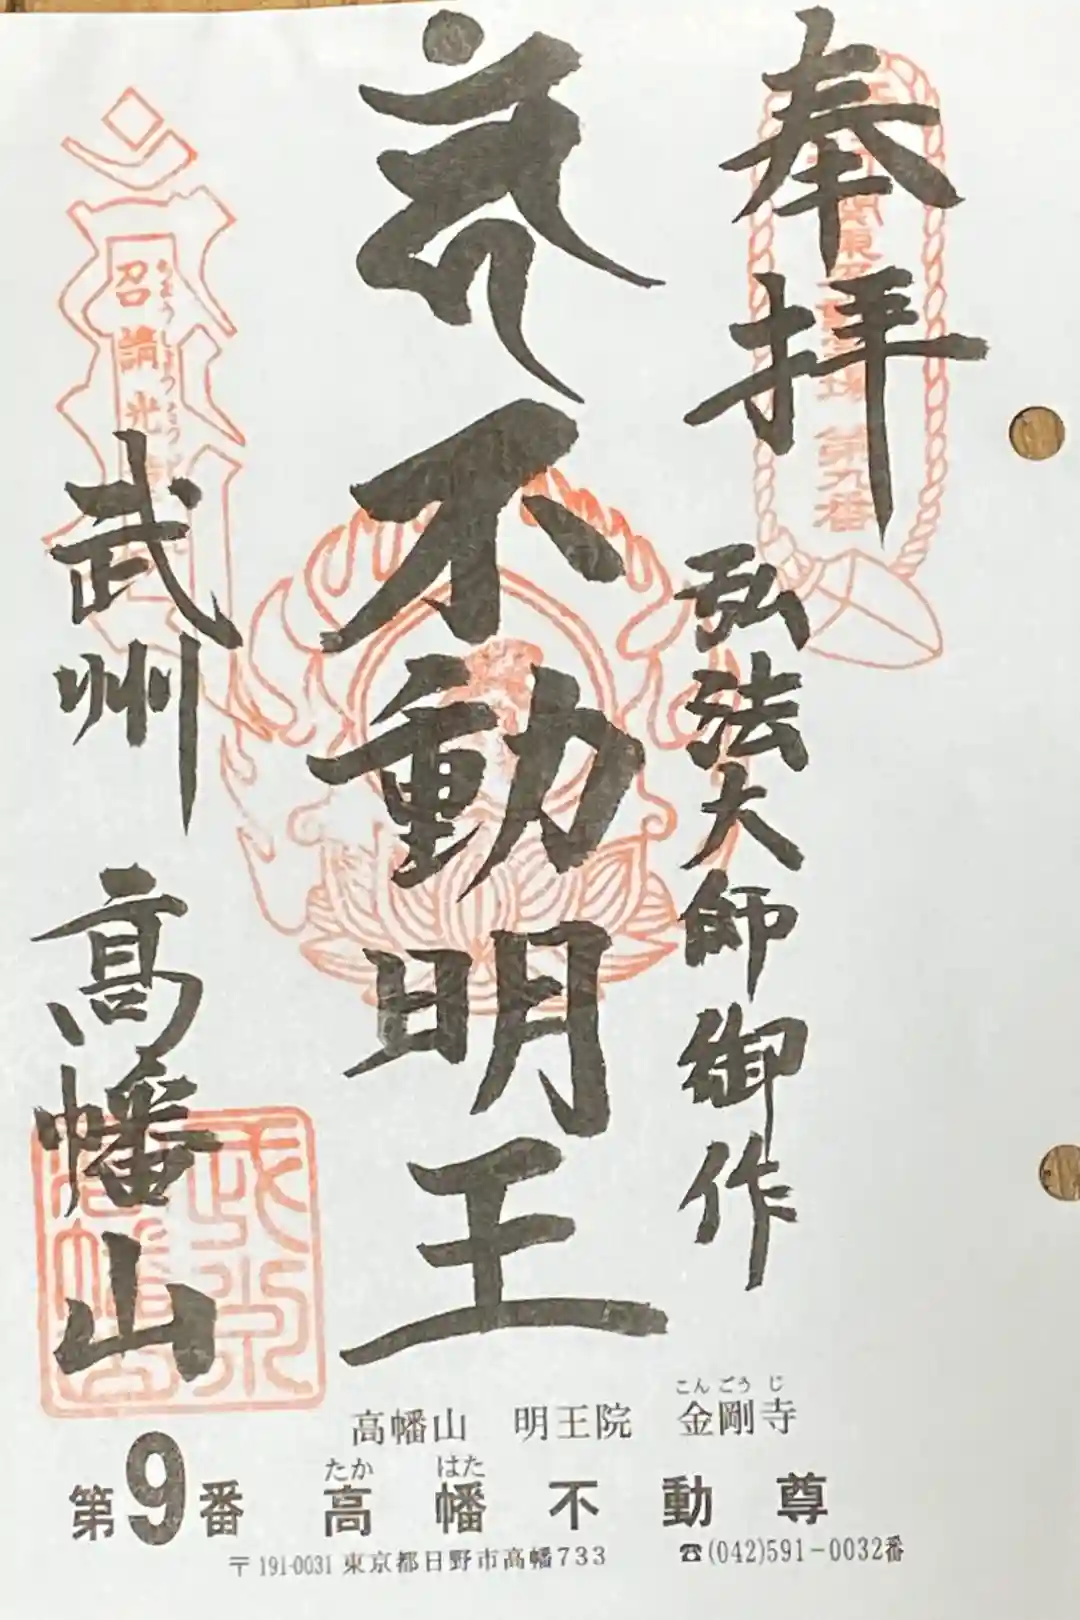 奉拝
弘法大師御作
不動明王
武州 高幡山
第九番
召請光
こん ごう じ
高幡山 明王院 金剛寺
たか はた
第9番 高幡不動尊
〒191-0031 東京都日野市高幡733 ☎(042)591-0032番